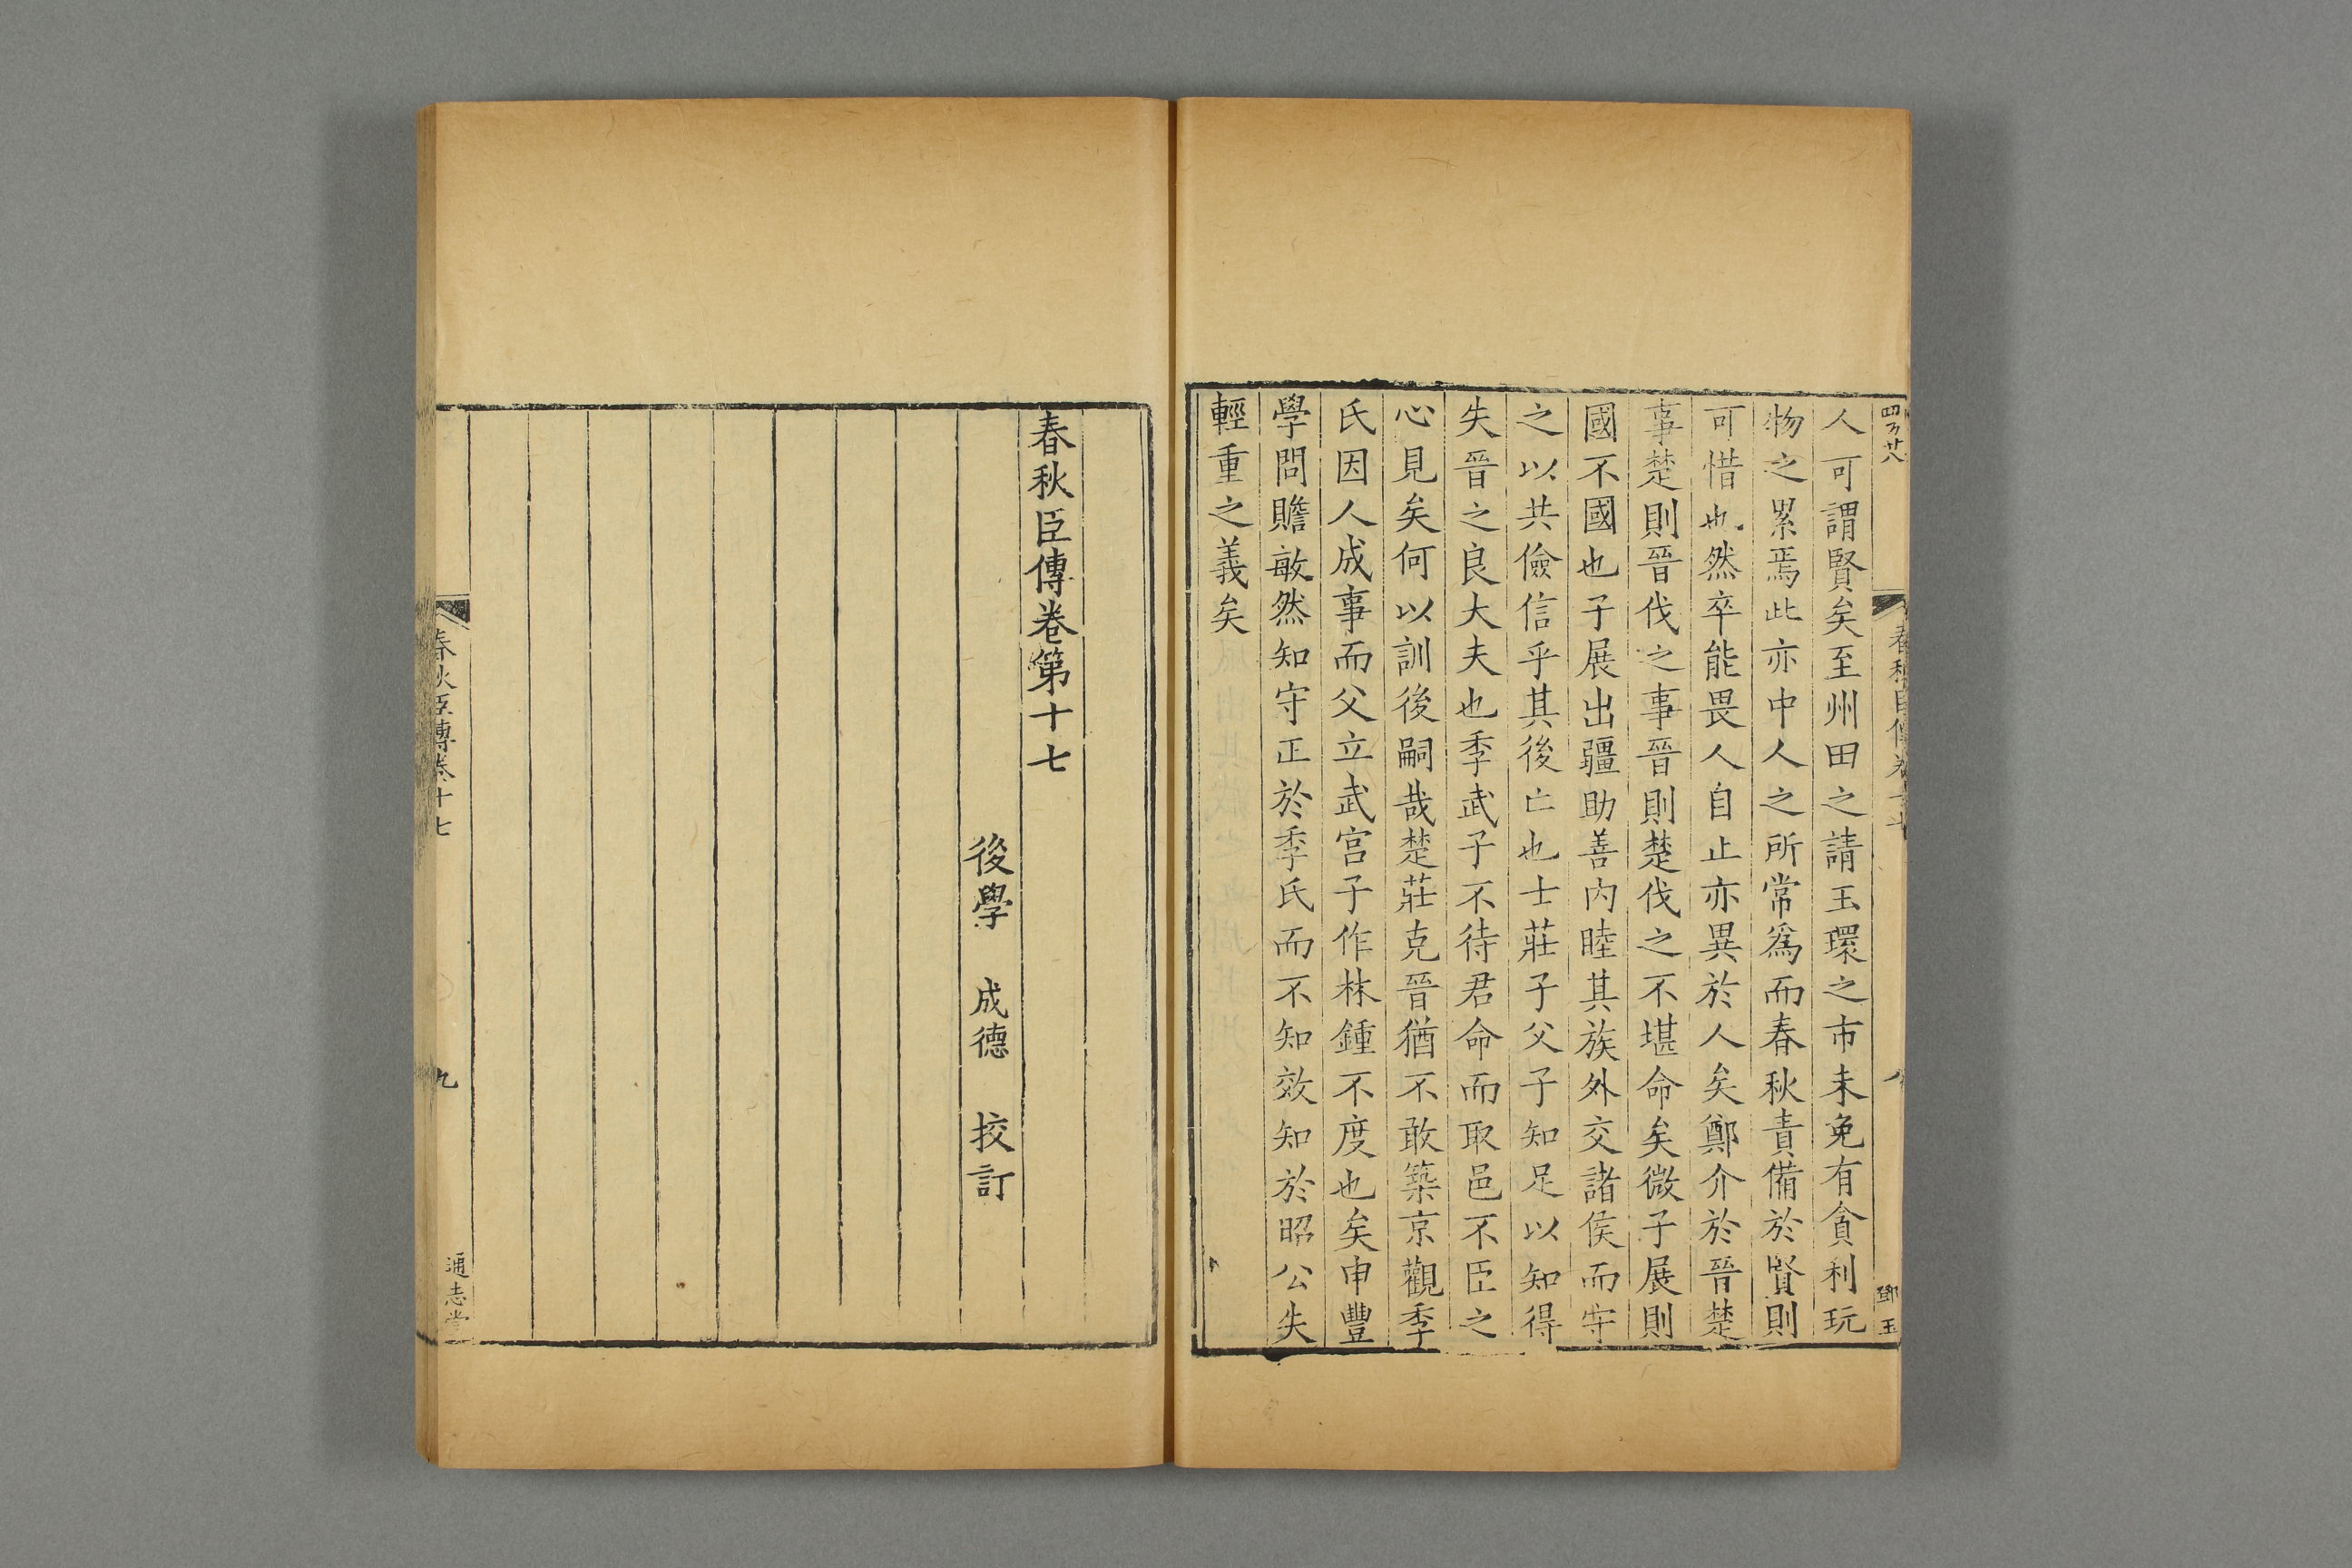 人可謂賢矣至州田之請玉環之市未免有貪利玩
物之累焉此亦中人之所常爲而春秋責備於賢則
可惜也然卒能畏人自止亦異於人矣鄭介於晉楚
事楚則晉伐之事晉則楚伐之不堪命矣微子展則
國不國也子展出疆助善內睦其族外交諸侯而守
之以共儉信乎其後亡也士莊子父子知足以知得
失晉之良大夫也季武子不待君命而取邑不臣之
心見矣何以訓後嗣哉楚莊克晉猶不敢築京觀季
氏因人成事而父立武宮子作林鍾不度也矣申豐
學問贍敏然知守正於季氏而不知效知於昭公失
輕重之義矣
春秋臣傳卷第十七
後學 成德 挍訂
春秋臣傳卷十七
九
通志堂